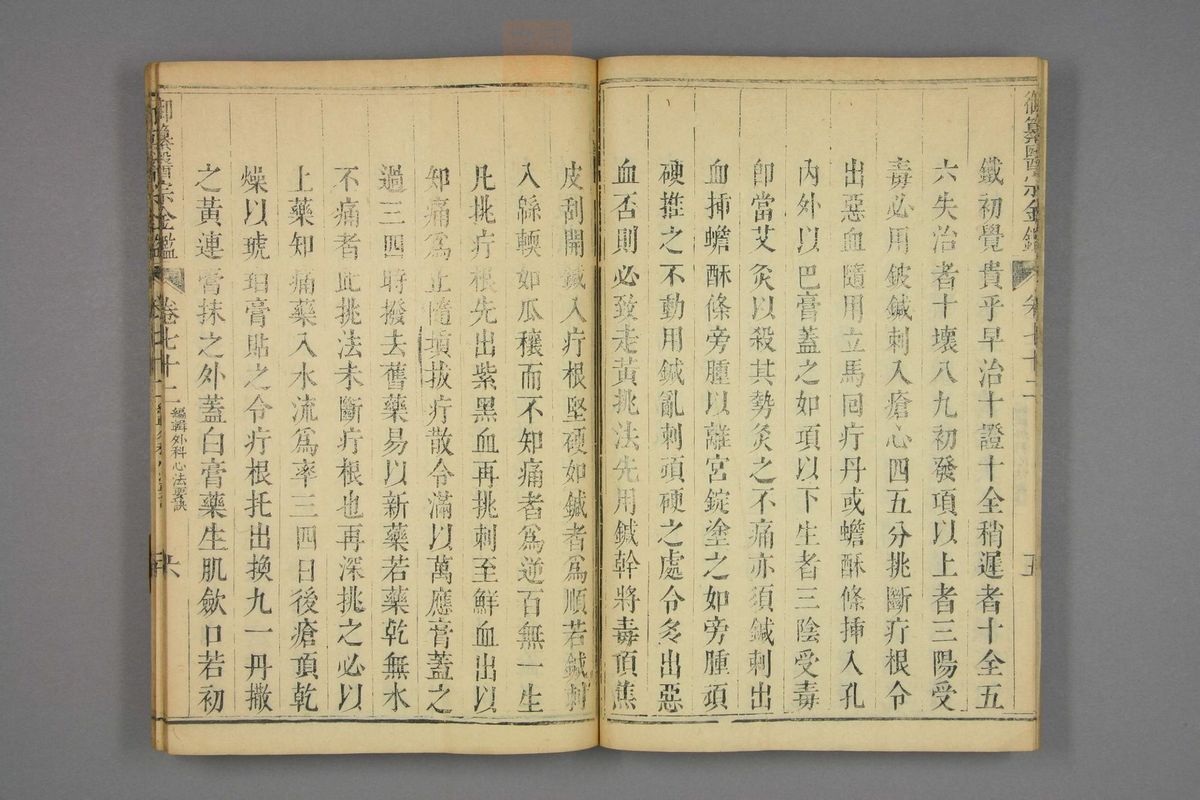 御纂醫宗金鑑
卷七十二
五
鐵初覺貴乎早治十證十全稍遲者十全五
六失治者十壞八九初發項以上者三陽受
毒必用鈹鍼刺入瘡心四五分挑斷疔根令
出惡血隨用立馬回疔丹或蟾酥條揷入孔
內外以巴膏蓋之如項以下生者三陰受毒
卽當艾灸以殺其勢灸之不痛亦須鍼刺出
血揷蟾酥條旁腫以離宮錠塗之如旁腫頑
硬推之不動用鍼亂刺頑硬之處令多出惡
血否則必致走黃挑法先用鍼幹將毒頂焦
皮刮開鍼入疔根堅硬如鍼者爲順若鍼刺
入緜輭如瓜穰而不知痛者爲逆百無一生
凡挑疔根先出紫黑血再挑刺至鮮血出以
知痛爲止隨塡拔疔散令滿以萬應膏蓋之
過三四時撥去舊藥易以新藥若藥乾無水
不痛者此挑法未斷疔根也再深挑之必以
上藥知痛藥入水流爲率三四日後瘡頂乾
燥以琥珀膏貼之令疔根托出換九一丹撒
之黃連膏抹之外蓋白膏藥生肌斂口若初
御纂醫宗金鑑
卷七十二
編輯外科心法要訣
六